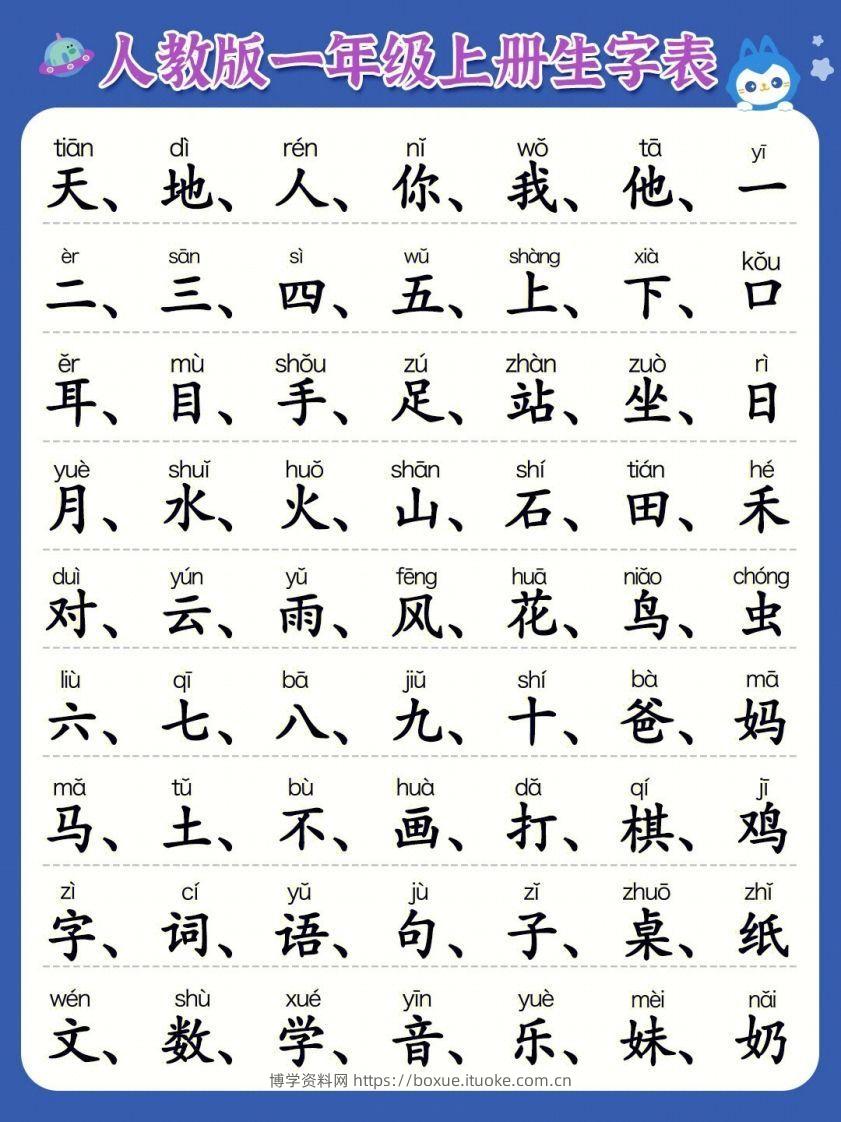 人教版一年级上册生字表
tiān dì rén nǐ wǒ tā yī
天、地、人、你、我、他、一
èr sān sì wǔ shàng xià kǒu
二、三、四、五、上、下、口
ěr mù shǒu zú zhàn zuò rì
耳、目、手、足、站、坐、日
yuè shuǐ huǒ shān shí tián hé
月、水、火、山、石、田、禾
duì yún yǔ fēng huā niǎo chóng
对、云、雨、风、花、鸟、虫
liù qī bā jiǔ shí bà mā
六、七、八、九、十、爸、妈
mǎ tǔ bù huà dǎ qí jī
马、土、不、画、打、棋、鸡
zì cí yǔ jù zǐ zhuō zhǐ
字、词、语、句、子、桌、纸
wén shù xué yīn yuè mèi nǎi
文、数、学、音、乐、妹、奶
博学资料网 https://boxue.ituoke.com.cn